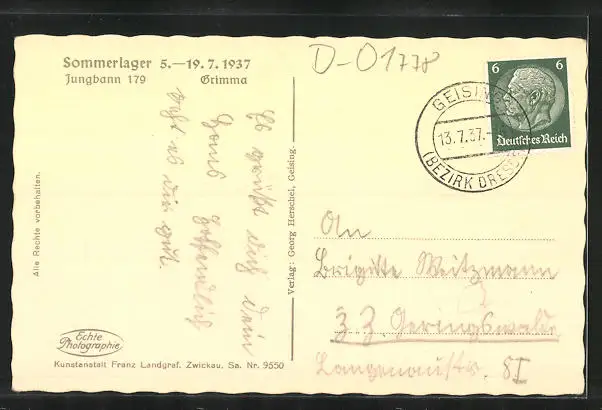 Sommerlager 5.—19. 7. 1937
Jungbann 179 Grimma
D-O1778
6 6
Deutsches Reich
GEISING
13.7.37.-
(BEZIRK DRESD
Es grüßt dich dein
Hans Hoffentlich
geht es dir gut.
Alle Rechte vorbehalten.
Verlag: Georg Herschel, Geising.
An
Brigitte Weitzmann
z. Z. Geringswalde
Echte
Photographie
Kunstanstalt Franz Landgraf. Zwickau, Sa. Nr. 9550